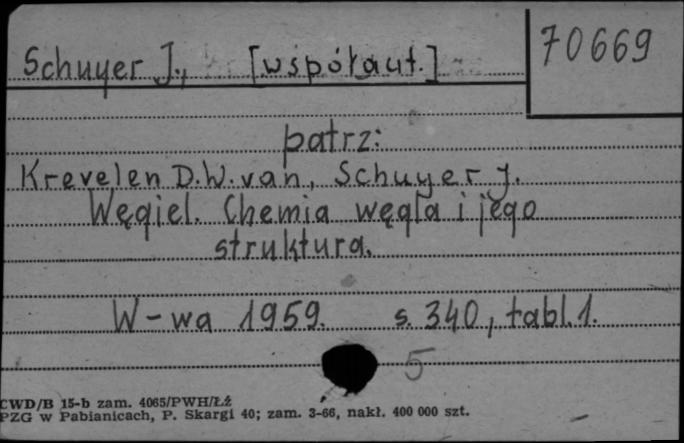 Schuyer J., [współaut.]
70669
patrz:
Krevelen D.W. van, Schuyer J.
Węgiel. Chemia węgla i jego
struktura.
W-wa 1959. s. 340, tabl. 1.
5
CWD/B 15-b zam. 4065/PWH/Łż
PZG w Pabianicach, P. Skargi 40; zam. 3-66, nakł. 400 000 szt.